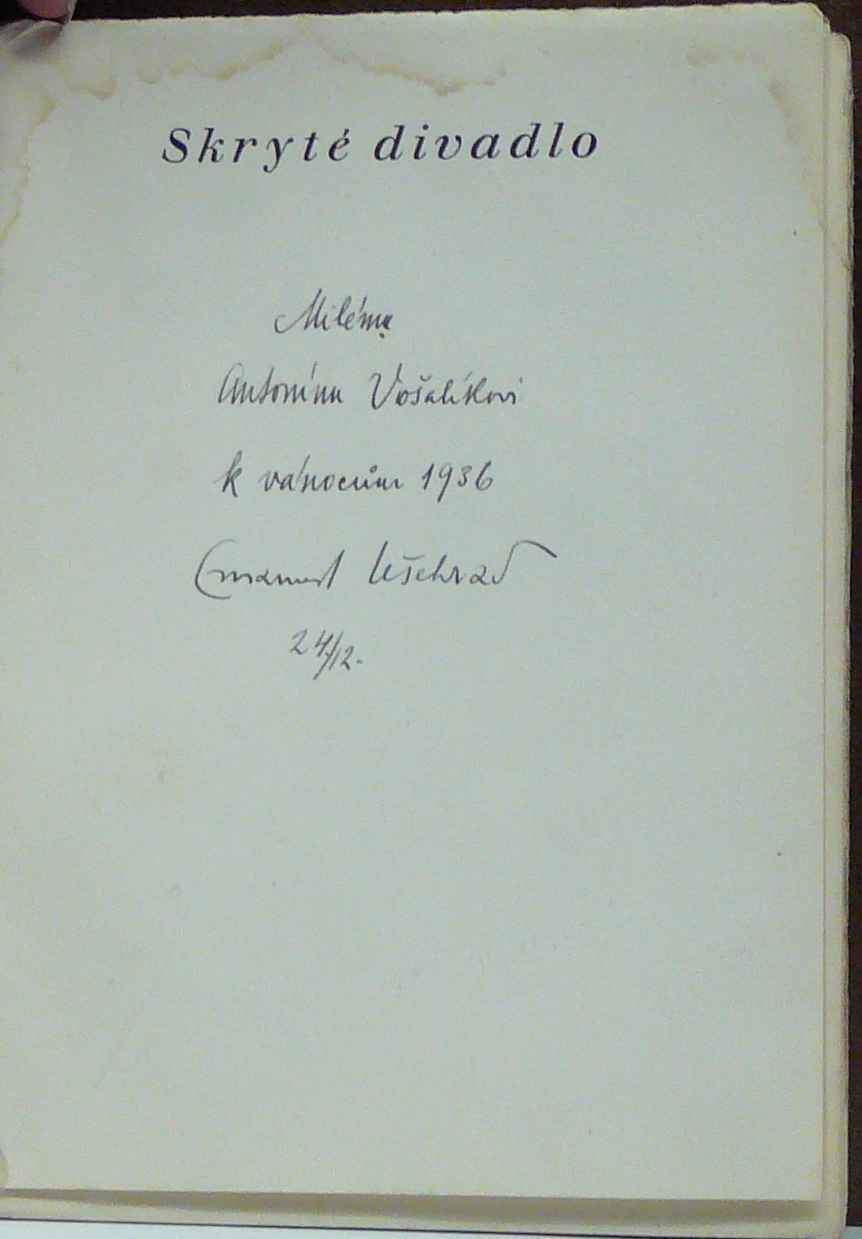 Skryté divadlo
Milému
Antonínu Vošalíkovi
k vánocům 1936
Emanuel Lešehrad
24/12.